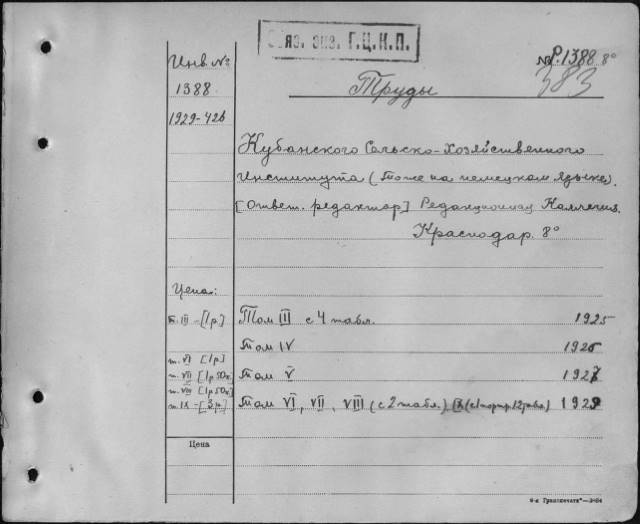 Обяз. экз. Г.Ц.К.П.
Инв №
№ Р.1388 8°
383
1388
Труды
1929-426
Кубанского Сельско-Хозяйственного
Института (тоже на немецком языке).
[ответ. редактор] Редакционная Коллегия.
Краснодар. 8°
Цена:
т. III - [1р.] Том III с 4 табл. 1925
Том IV 1926
т. VI [1р]
т. VII [1р 50к] Том V 1927
т. VIII [1р 50к]
т. IX - [3р.] Том VI, VII, VIII (с 2 табл.) IX (с 1 портр. 12 табл.) 1929
Цена
6-я Гранпечати"—3484